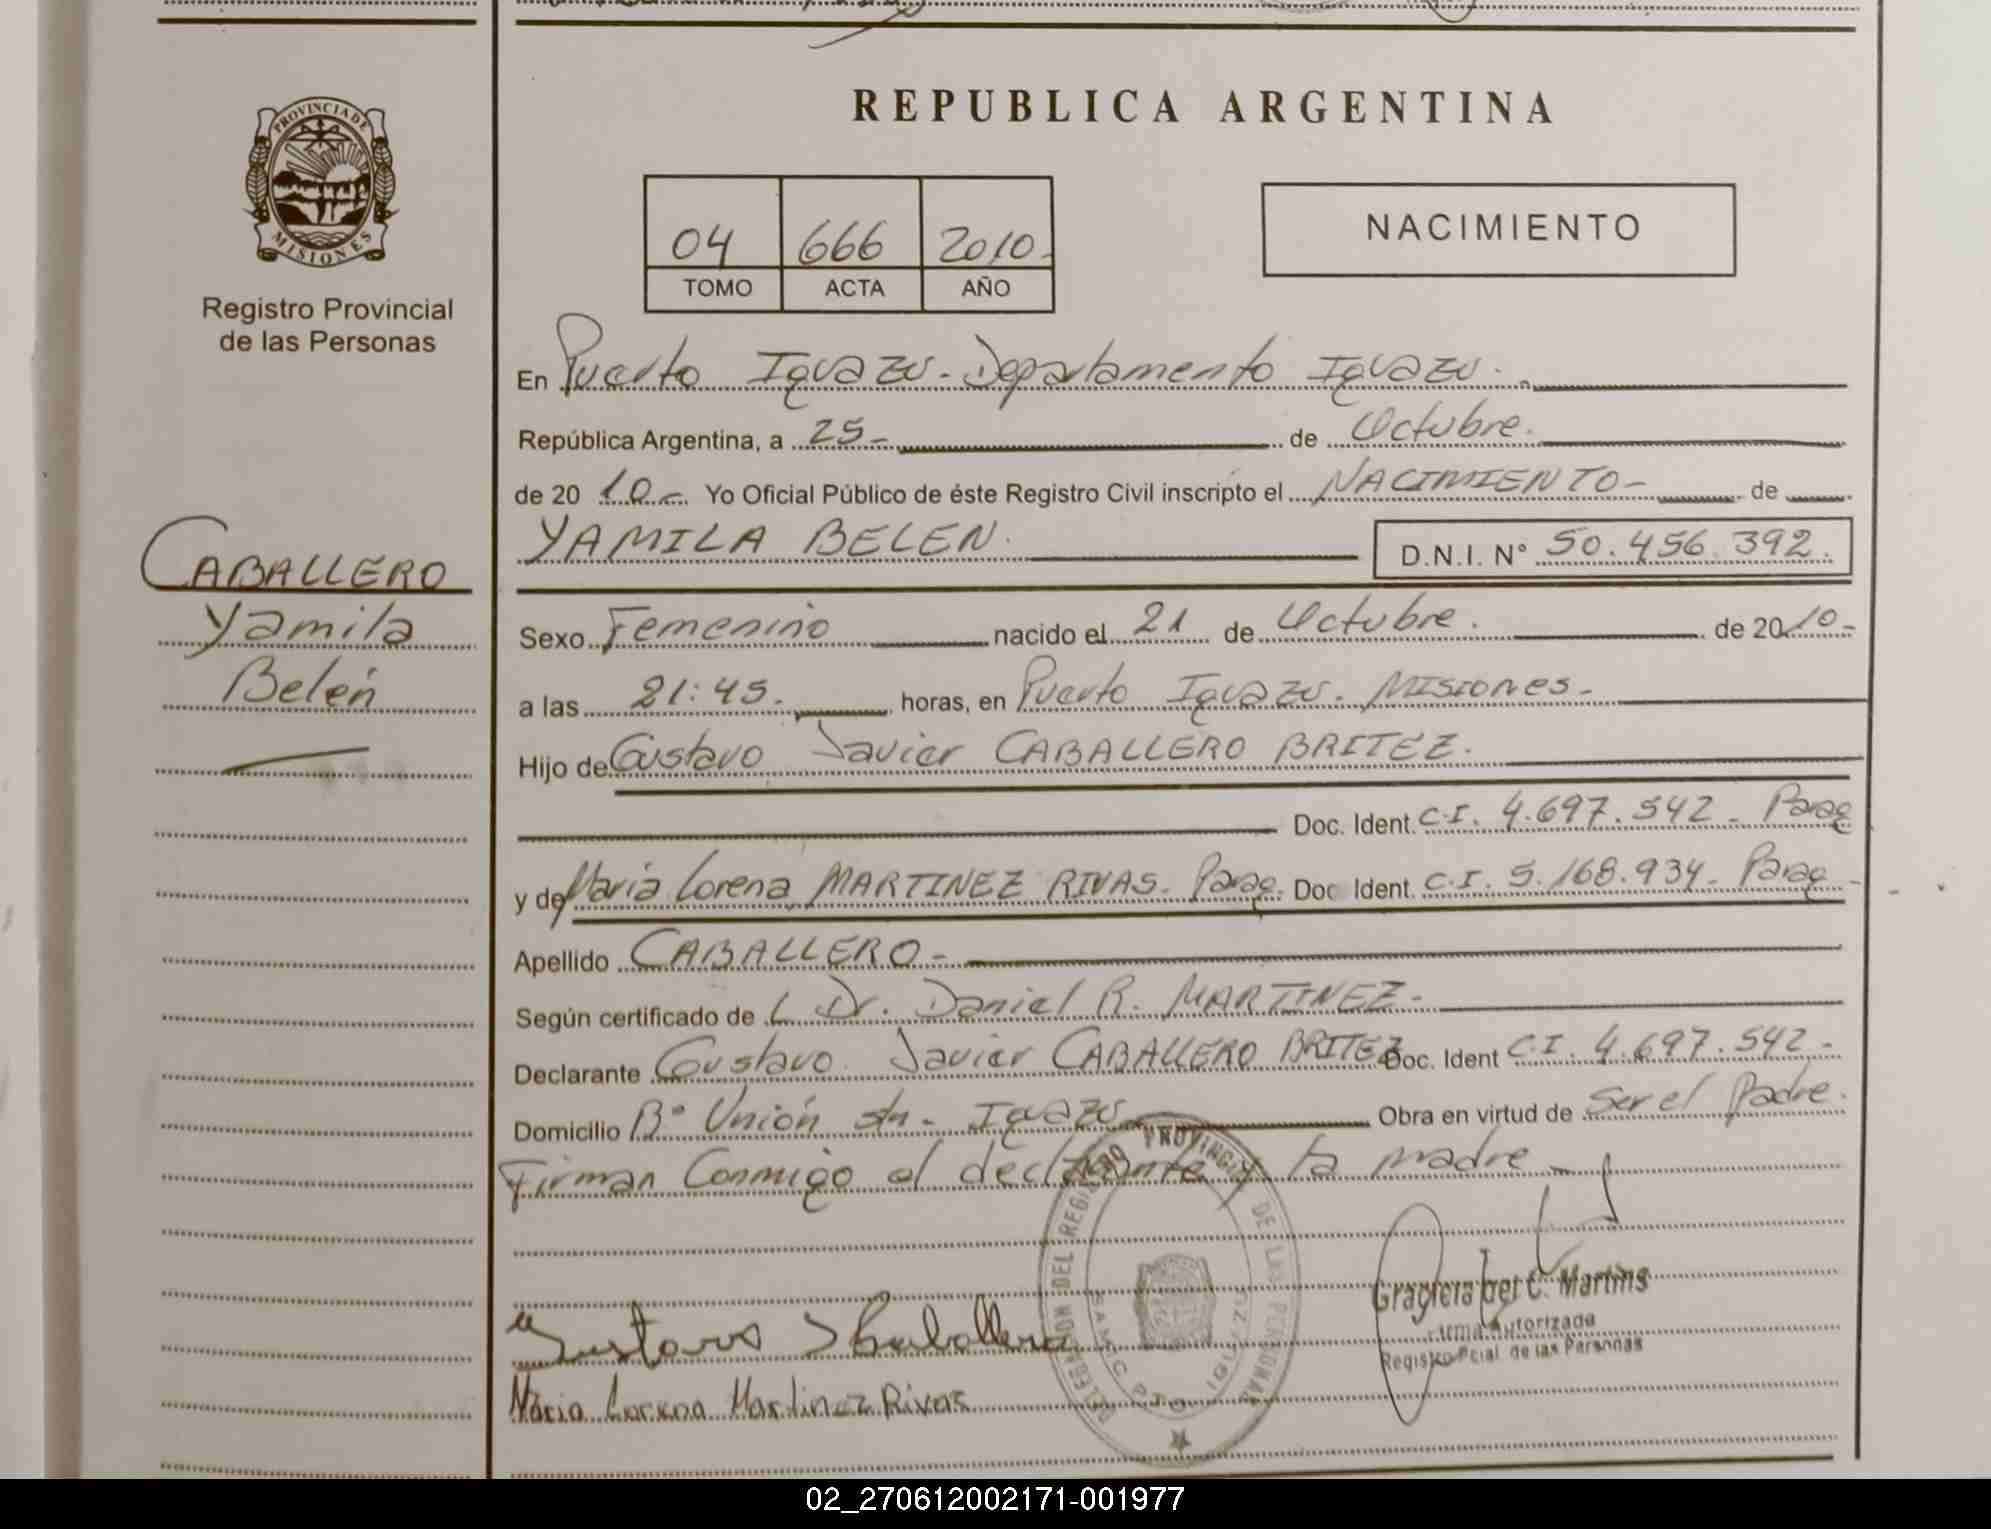 REPUBLICA ARGENTINA
PROVINCIA DE
MISIONES
Registro Provincial
de las Personas
04 666 2010-
TOMO ACTA AÑO
NACIMIENTO
En Puerto Iguazu - Departamento Iguazu.
República Argentina, a 25- de Octubre.
de 20 10- Yo Oficial Público de éste Registro Civil inscripto el NACIMIENTO- de
YAMILA BELEN. D.N.I. N° 50.456.392.
CABALLERO
Yamila
Belén
Sexo Femenino nacido el 21 de Octubre. de 2010-
a las 21:45. horas, en Puerto Iguazu. Misiones-
Hijo de Gustavo Javier CABALLERO BRITEZ.
Doc. Ident. C.I. 4.697.542 - Parag
y de Maria Lorena MARTINEZ RIVAS. Parag. Doc Ident. C.I. 5.168.934- Parag -
Apellido CABALLERO-
Según certificado de L Dr. Daniel R. MARTINEZ-
Declarante Gustavo Javier CABALLERO BRITEZ Doc. Ident C.I. 4.697.542-
Domicilio B° Unión s/n- Iguazu Obra en virtud de Ser el Padre.
Firman Conmigo el declarante y la madre-
DELEGACION DEL REGISTRO PROVINCIAL DE LAS PERSONAS
PTO IGUAZU
Gustavo J Caballero
Maria Lorena Martinez Rivas
C. Martins
Firma Autorizada
Registro Pcial. de las Personas
02_270612002171-001977